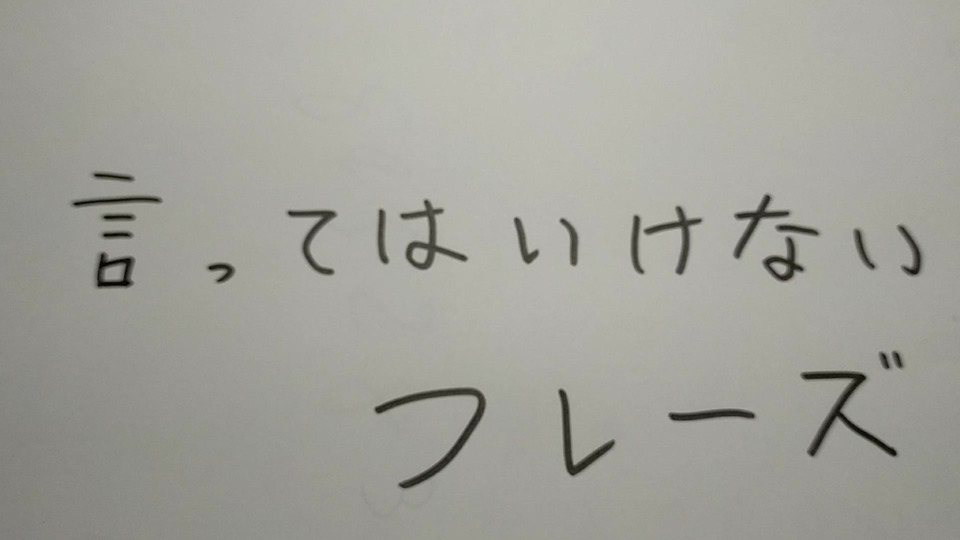 言ってはいけない
フレーズ